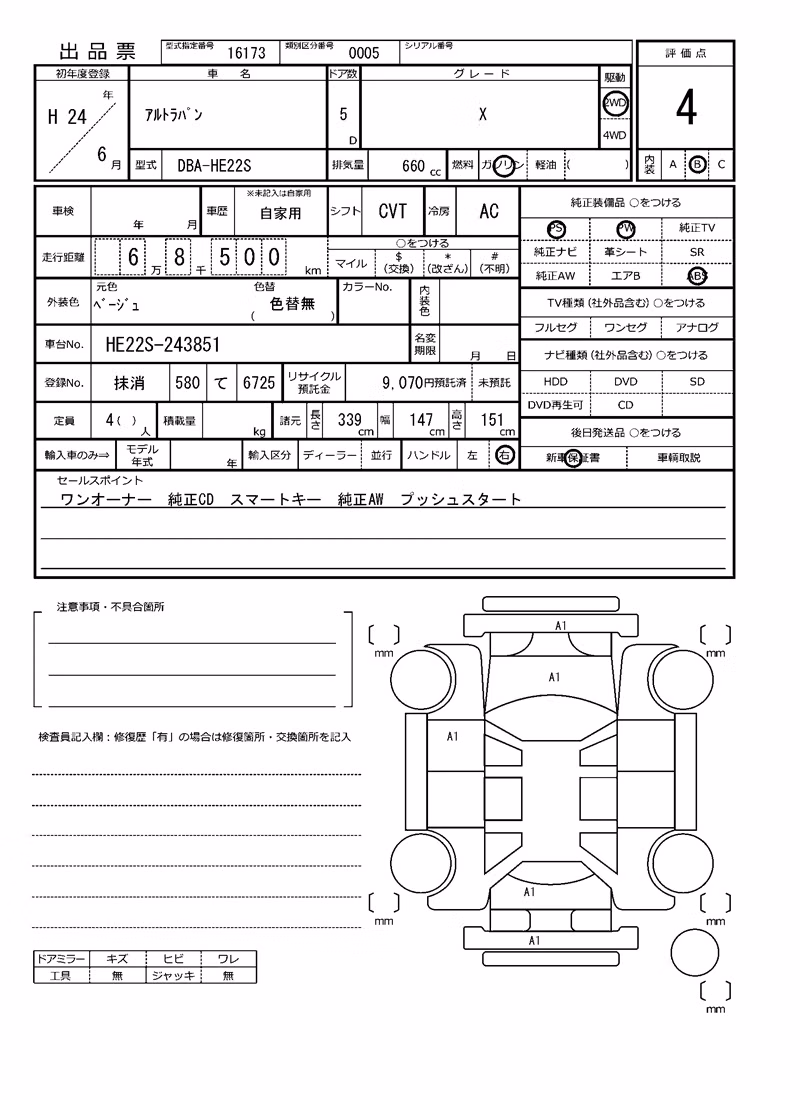 出品票
型式指定番号 16173 類別区分番号 0005 シリアル番号
評価点
初年度登録 車名 ドア数 グレード 駆動
H 24 年 6 月
ｱﾙﾄﾗﾊﾟﾝ 5 D X 2WD 4WD
4
型式 DBA-HE22S 排気量 660 cc 燃料 ガソリン 軽油 ( )
内装 A B C
車検 年 月 車歴 ※未記入は自家用 自家用 シフト CVT 冷房 AC
純正装備品 ○をつける
PS PW 純正TV
走行距離 6 万 8 千 5 0 0 km ○をつける
マイル $ (交換) * (改ざん) # (不明)
純正ナビ 革シート SR
純正AW エアB ABS
外装色 元色 ﾍﾞｰｼﾞｭ 色替 ( 色替無 ) カラーNo. 内装色
TV種類 (社外品含む) ○をつける
フルセグ ワンセグ アナログ
車台No. HE22S-243851 名変期限 月 日
ナビ種類 (社外品含む) ○をつける
HDD DVD SD
登録No. 抹消 580 て 6725 リサイクル預託金 9,070円預託済 未預託
DVD再生可 CD
定員 4( ) 人 積載量 kg 諸元 長さ 339 cm 幅 147 cm 高さ 151 cm
後日発送品 ○をつける
輸入車のみ⇒ モデル年式 年 輸入区分 ディーラー 並行 ハンドル 左 右
新車保証書 車輌取説
セールスポイント
ワンオーナー 純正CD スマートキー 純正AW プッシュスタート
注意事項・不具合箇所
A1
mm mm
A1
検査員記入欄：修復歴「有」の場合は修復箇所・交換箇所を記入
A1
A1
mm mm
A1
ドアミラー キズ ヒビ ワレ
工具 無 ジャッキ 無
mm